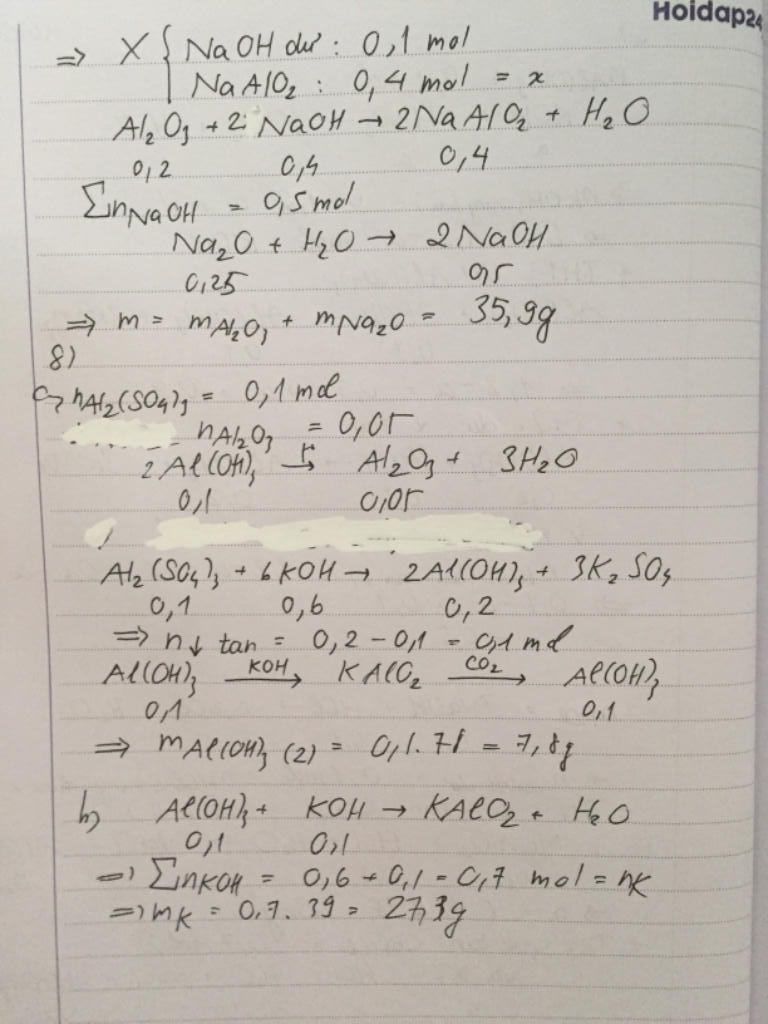 Hoidap24
=> X { NaOH dư : 0,1 mol
NaAlO2 : 0,4 mol = x
Al2O3 + 2 NaOH → 2NaAlO2 + H2O
0,2 0,4 0,4
ΣnNaOH = 0,5 mol
Na2O + H2O → 2NaOH
0,25 0,5
=> m = mAl2O3 + mNa2O = 35,9g
8)
nAl2(SO4)3 = 0,1 mol
nAl2O3 = 0,05
2Al(OH)3 → Al2O3 + 3H2O
0,1 0,05
Al2(SO4)3 + 6KOH → 2Al(OH)3 + 3K2SO4
0,1 0,6 0,2
=> n↓ tan = 0,2 - 0,1 = 0,1 mol
Al(OH)3 —KOH→ KAlO2 —CO2→ Al(OH)3
0,1 0,1
=> mAl(OH)3 (2) = 0,1.78 = 7,8g
b) Al(OH)3 + KOH → KAlO2 + H2O
0,1 0,1
=> ΣnKOH = 0,6 + 0,1 = 0,7 mol = nK
=> mK = 0,7. 39 = 27,3g